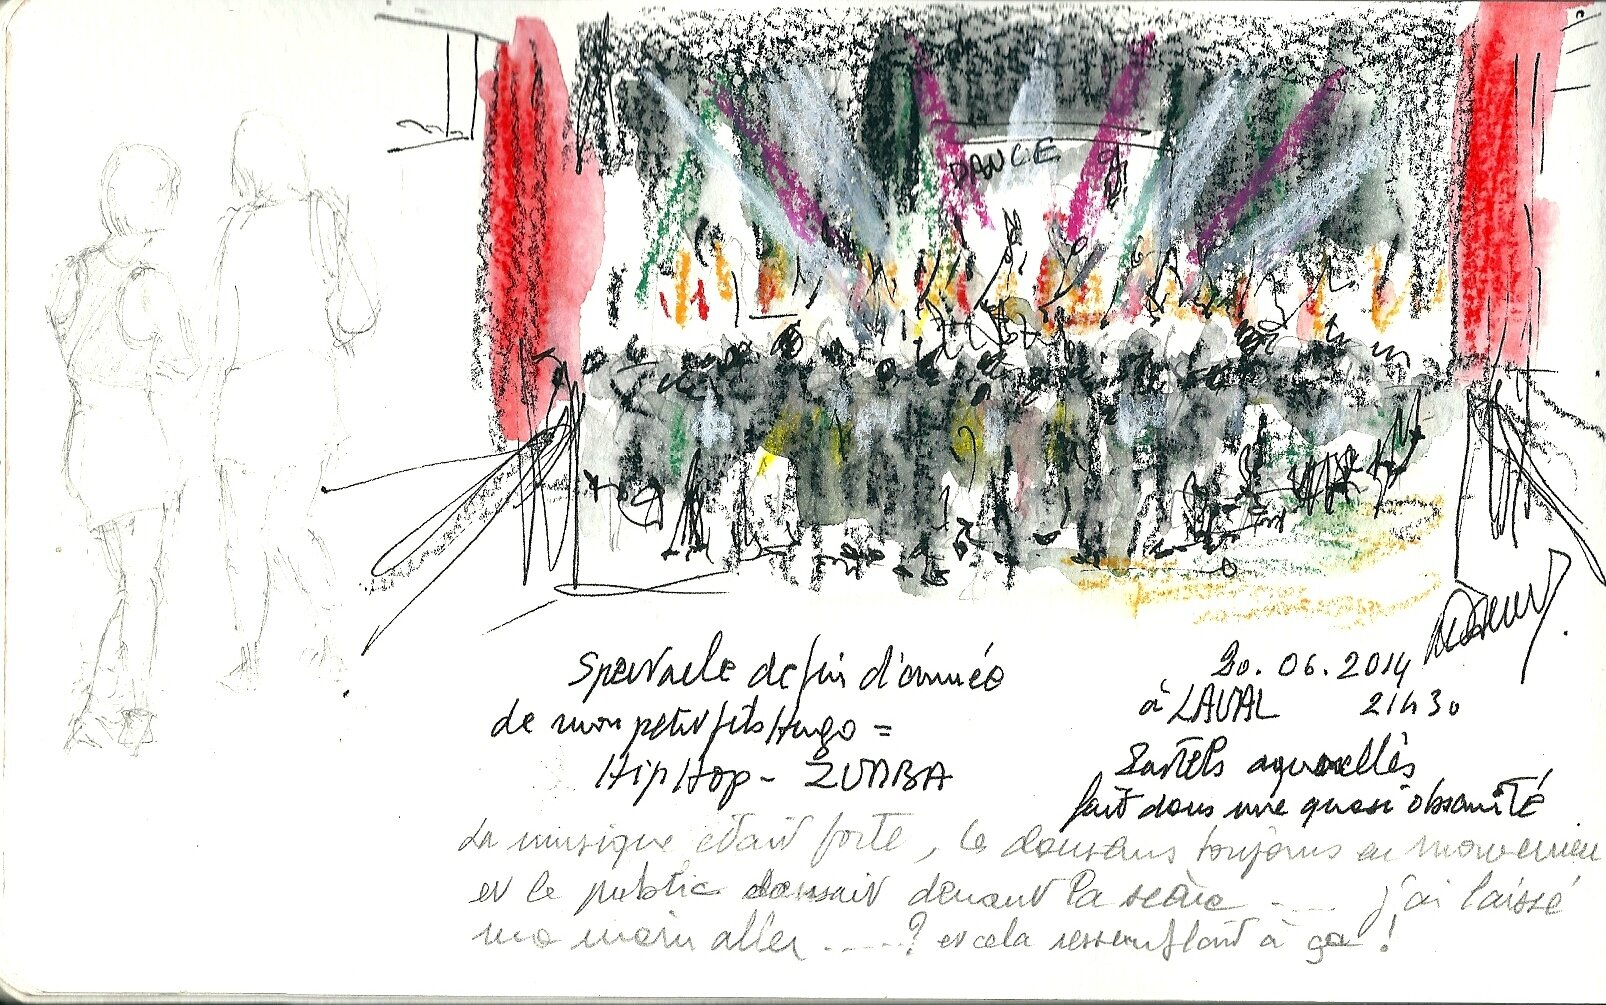 DANCE
Spectacle de fin d'année
de mon petit fils Hugo =
Hip Hop - ZUMBA
20.06.2014
à LAVAL 21h30
Pastels aquarellés
fait dans une quasi obscurité
La musique était forte, les danseurs toujours en mouvement
et le public dansait devant la scène .... j'ai laissé
ma main aller .....? et cela ressemblait à ça !